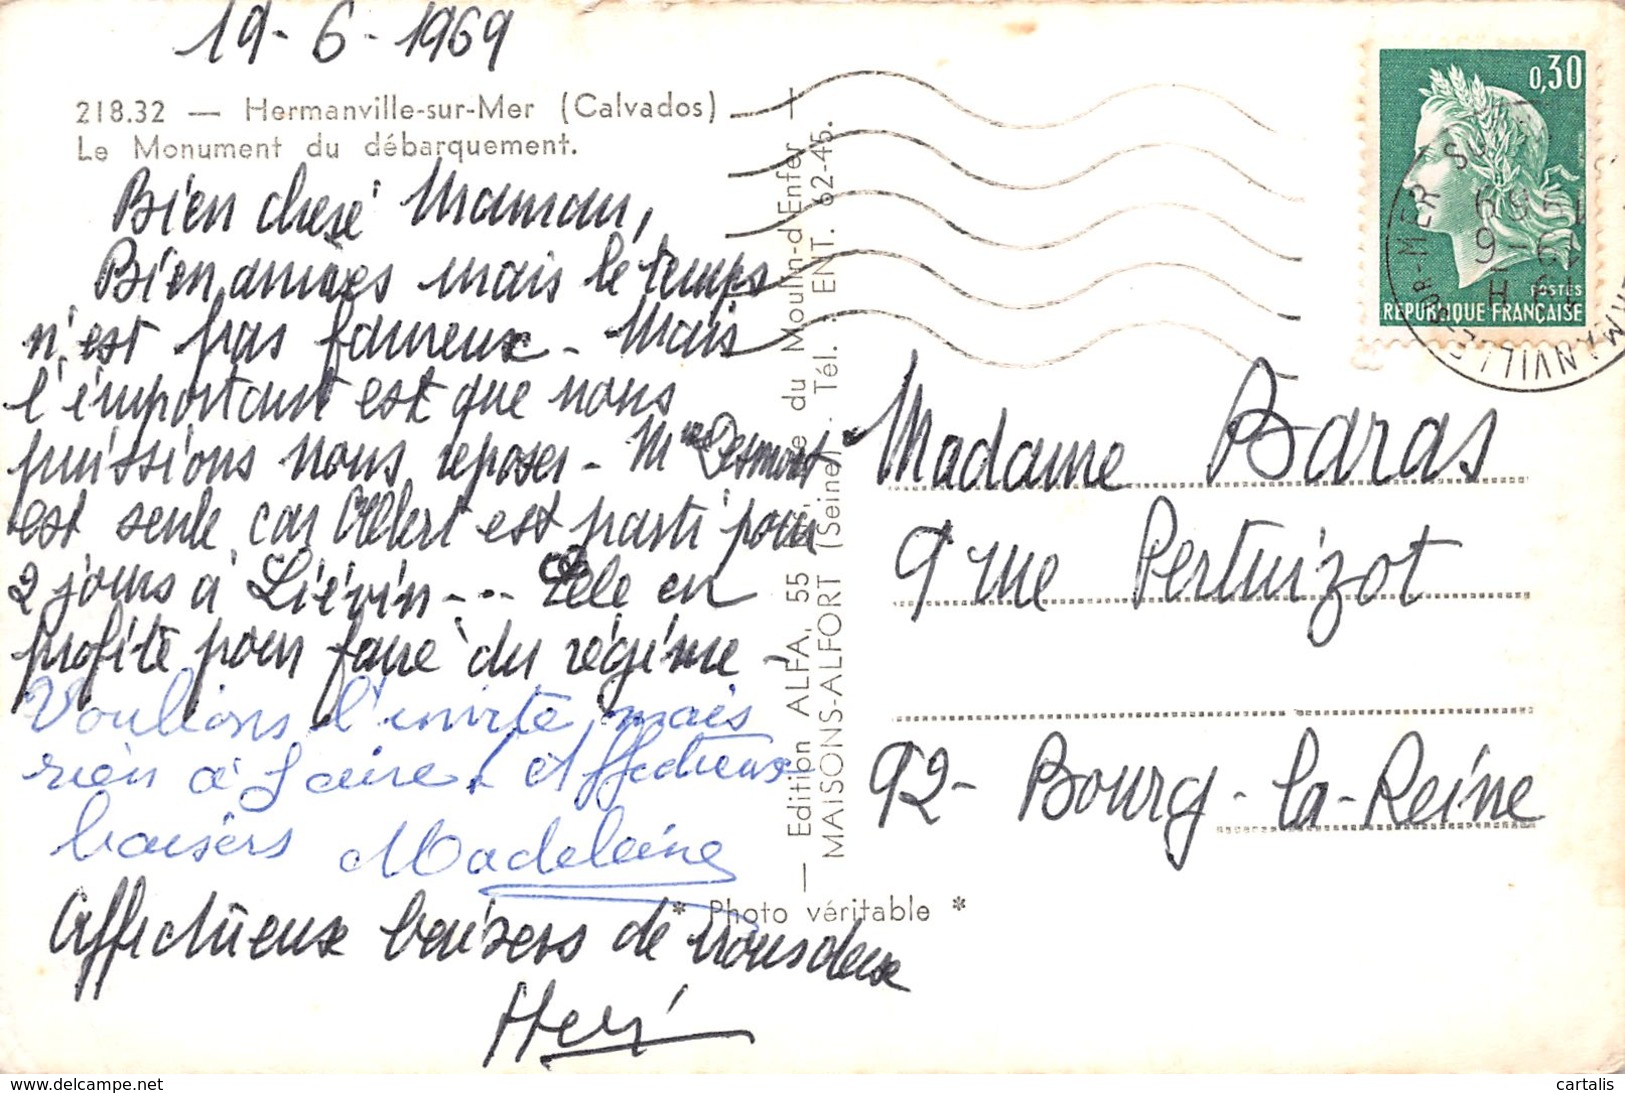 19-6-1969
218.32 — Hermanville-sur-Mer (Calvados)
Le Monument du débarquement.
Bien chere Maman,
Bien arrivés mais le temps
n'est pas fameux - Mais
l'important est que nous
puissions nous reposer - Mme Desmont
est seule car Albert est parti pour
2 jours à Liévin - .. Elle en
profite pour faire du régime -
Voulions l'invité mais
rien à faire! Affectueux
baisers Madeleine
Affectueux baisers de nous deux
— Edition ALFA, 55 rue du Moulin-d'Enfer —
MAISONS-ALFORT (Seine) - Tél. : ENT. 62-45.
* Photo véritable *
0,30
POSTES
RÉPUBLIQUE FRANÇAISE
HERMANVILLE SUR-MER
Madame Baras
9 rue Pertuizot
92 - Bourg-la-Reine
www.delcampe.net
cartalis